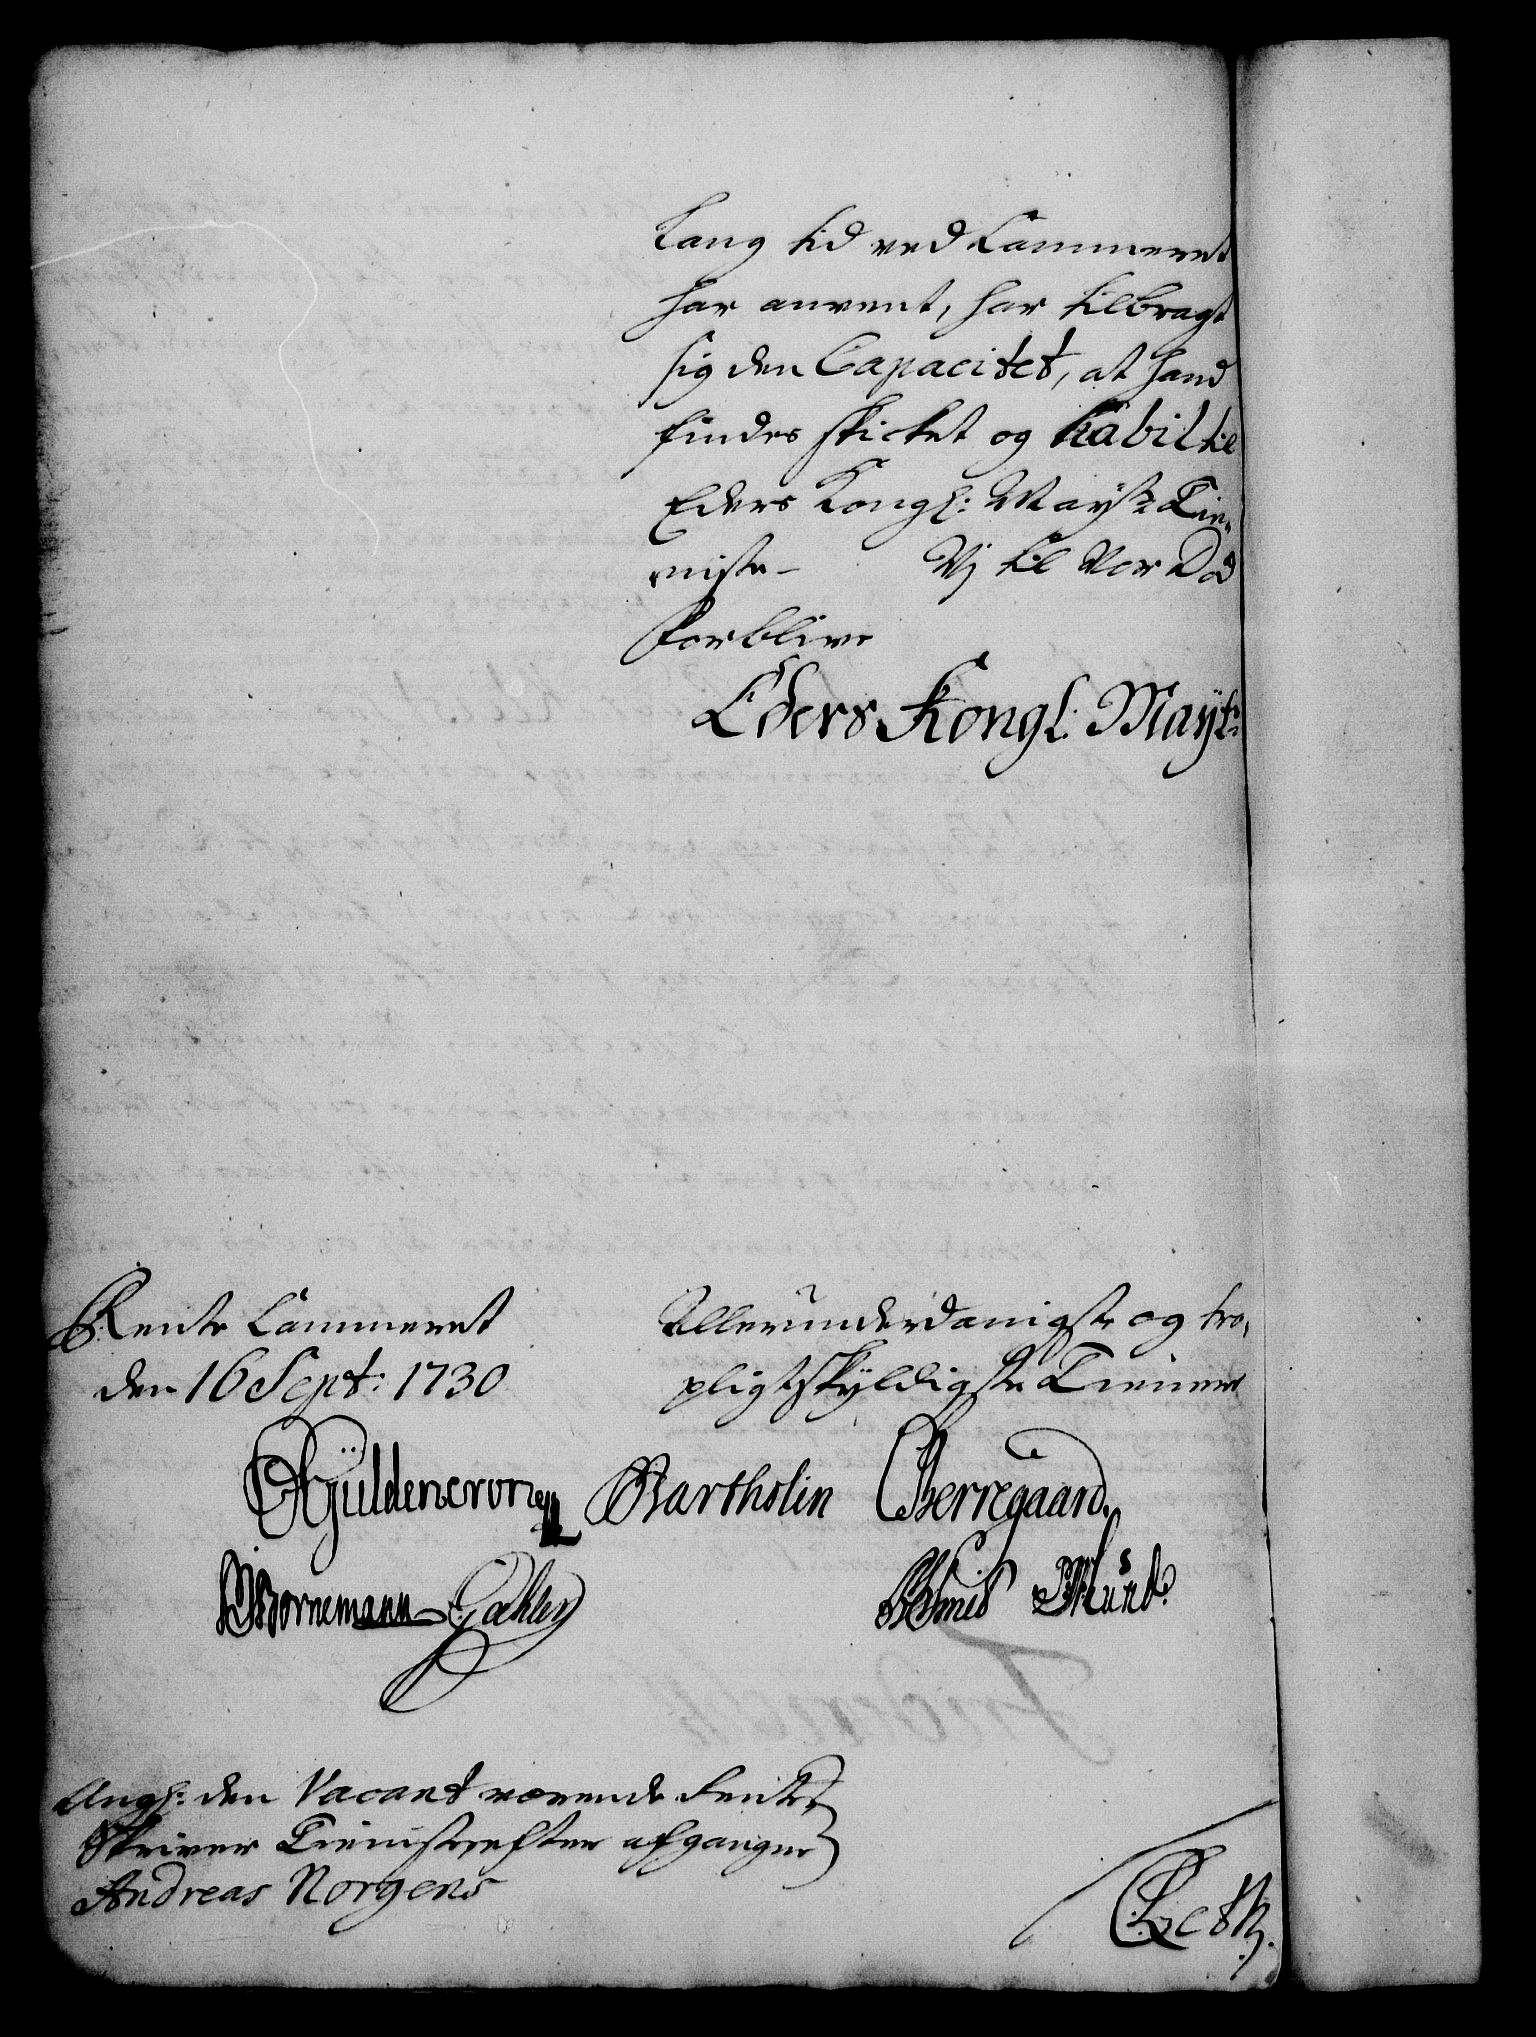 Lang tid ved Cammeret
har anvent, har tilbragt
sig den Capacitet, at hand
findes skicket og habil til
Eders Kongl: Mayts Tie,,
niste— Vj til Vor Død
forblive
Eders Kongl: Mayts:
Rente Cammeret
den 16 Sept: 1730
Allerunderdanigste og tro,
pligtskyldigste Tienere
Güldencrone Bartholin CBerregaard.
Bornemann
Angl: den Vacant værende Rente
Skriver Tieniste efter afgangne
Andreas Norgens